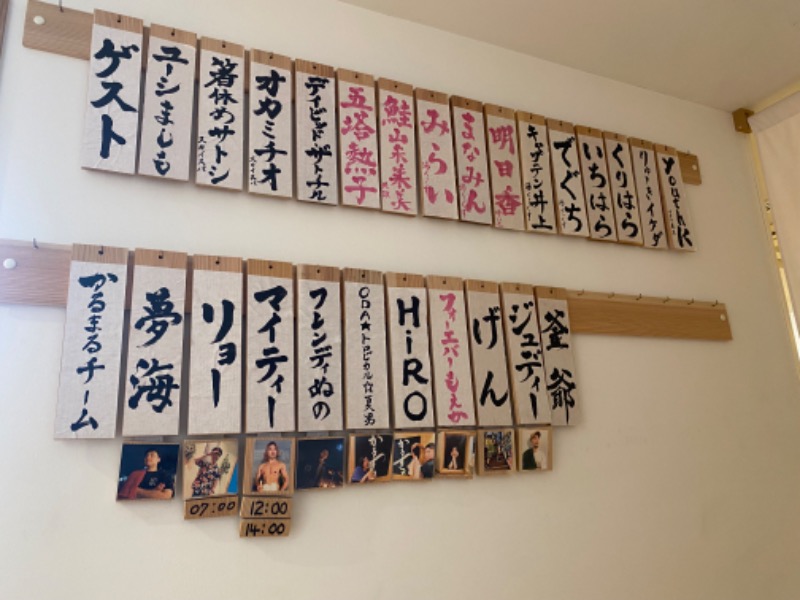 ゲスト
ユーシましも
箸休めサトシ
オカミチオ
デイビッド・ザトチル
五塔熱子
鮭山未菜美
みらい
まなみん
明日香
キャプテン井上
でぐち
いちはら
くりはら
かるまるチーム
夢海
リョー
マイティー
フレンディぬの
ODA★トロピカル☆夏男
HiRO
フォーエバーもえか
げん
ジュディー
釜爺
07:00
12:00
14:00